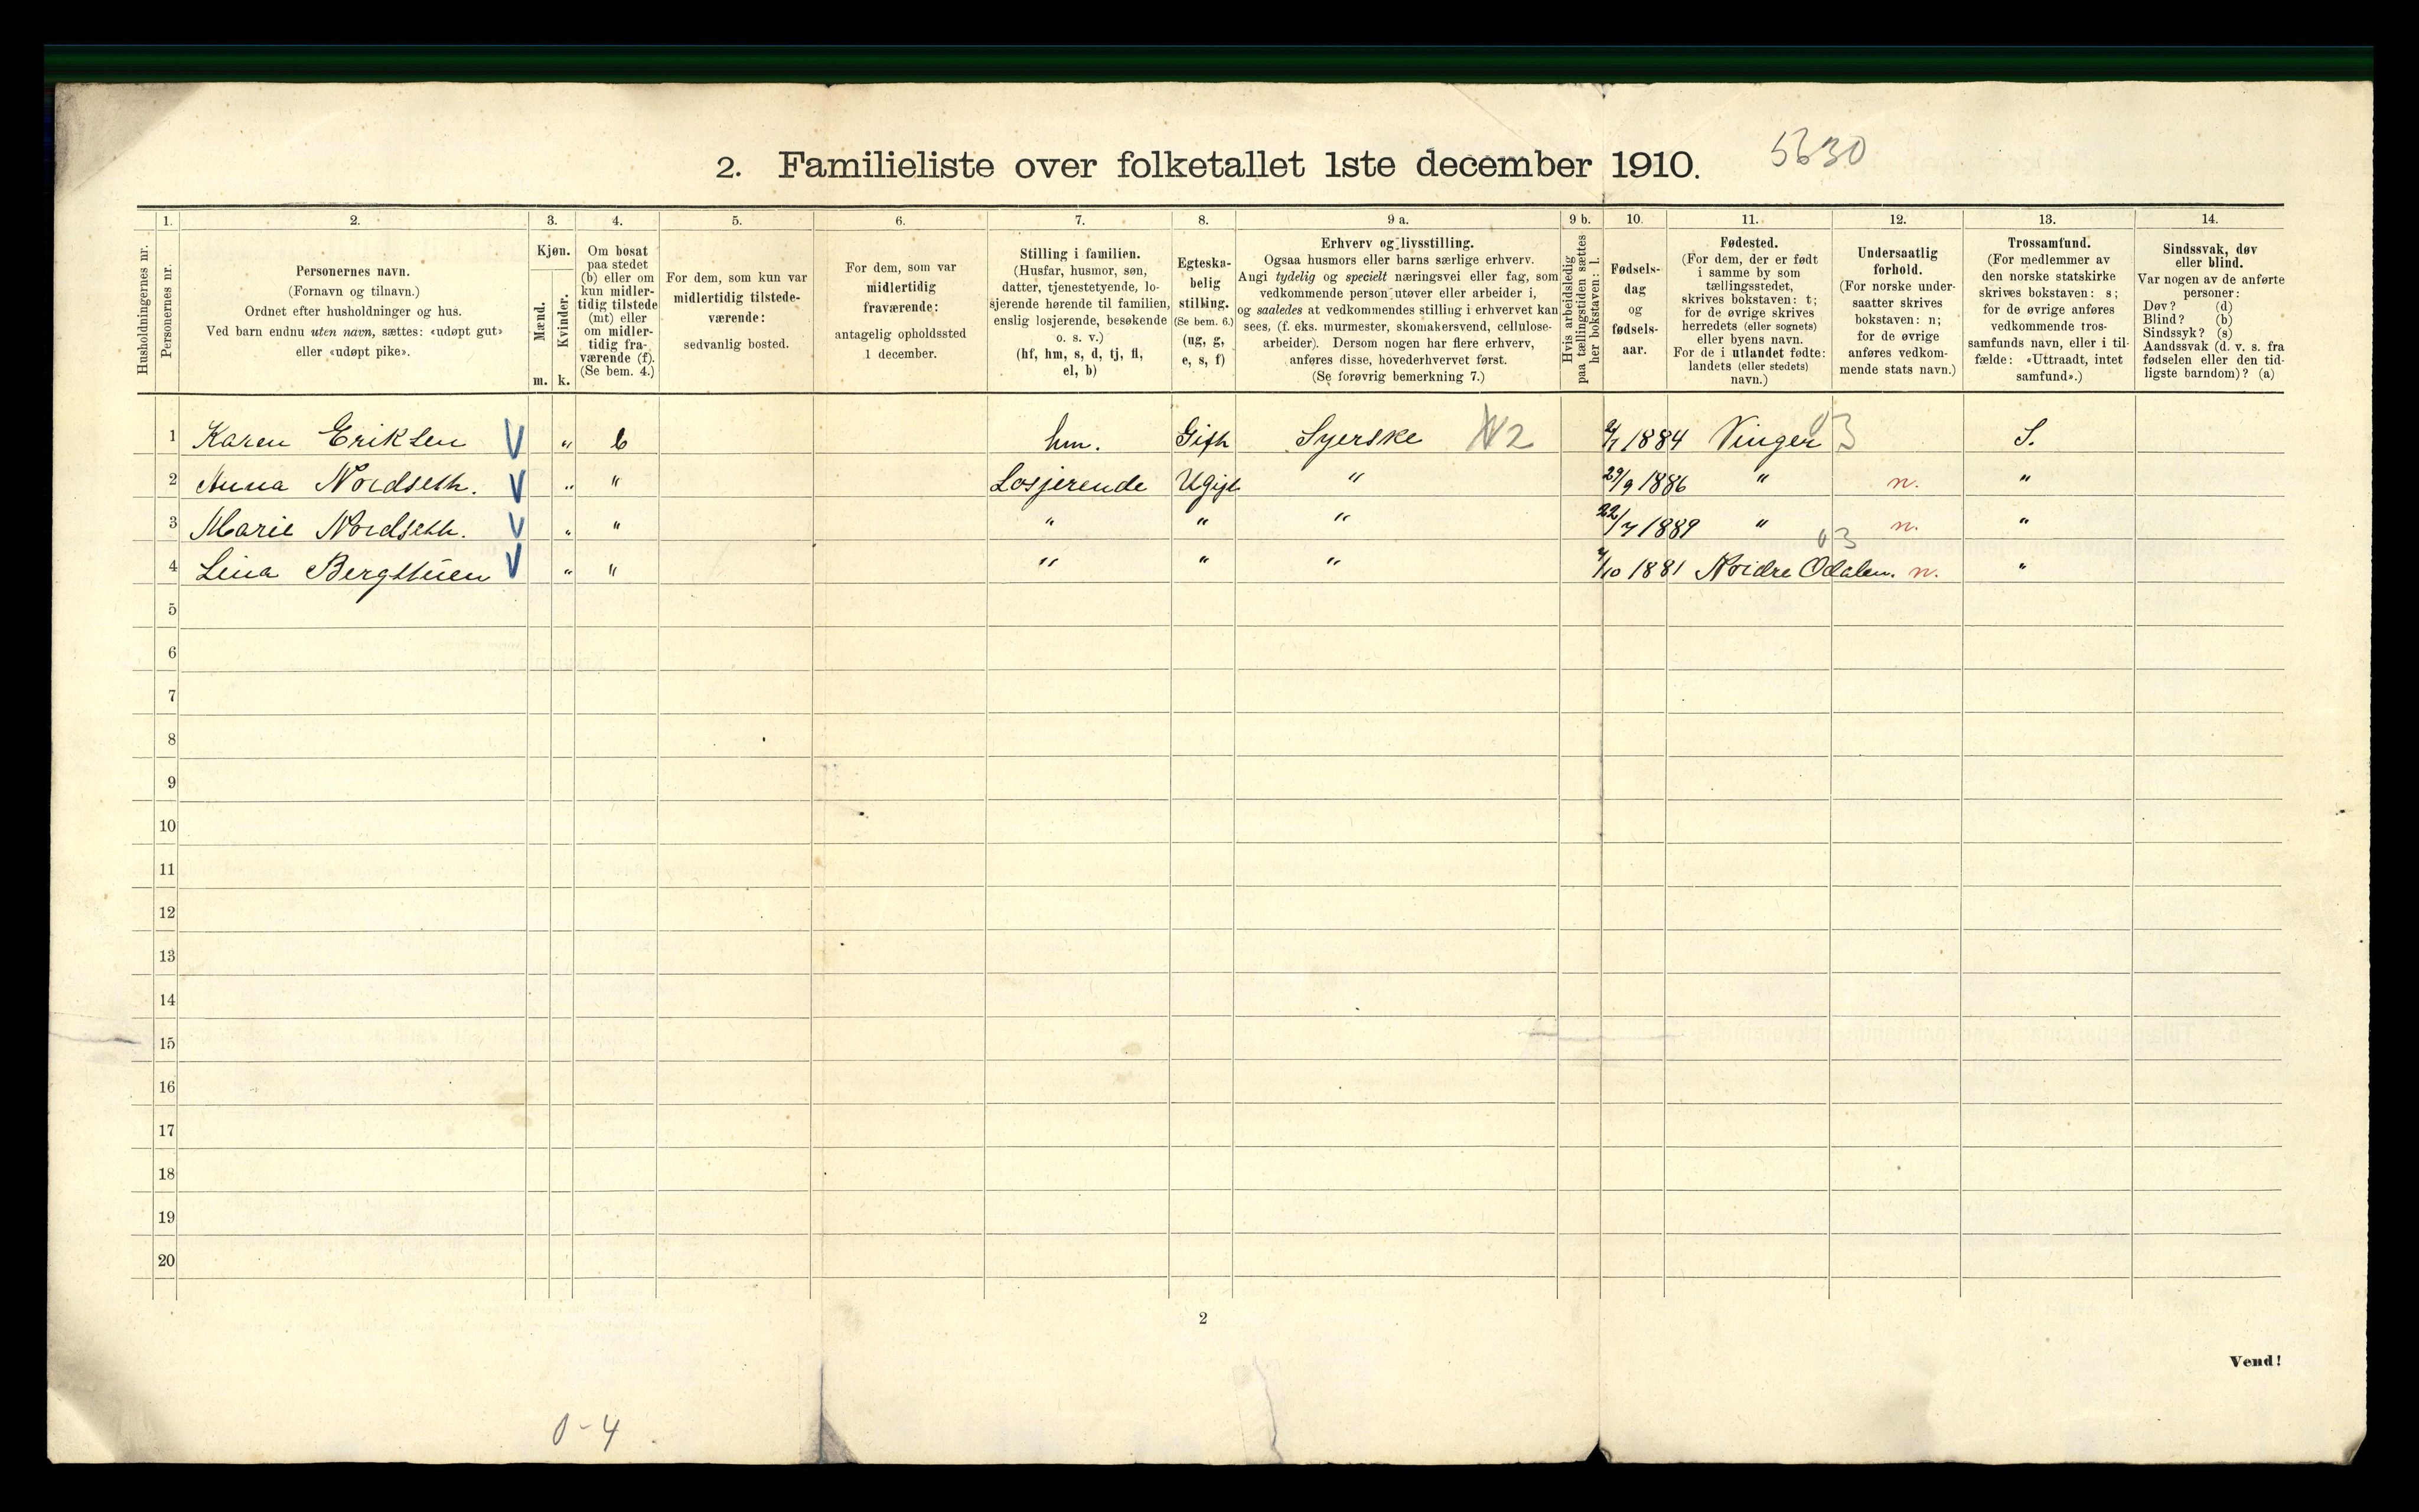 2. Familieliste over folketallet 1ste december 1910. 5630
Husholdningernes nr.
1.
Personernes nr.
2.
Personernes navn.
(Fornavn og tilnavn.)
Ordnet efter husholdninger og hus.
Ved barn endnu uten navn, sættes: «udøpt gut»
eller «udøpt pike».
3.
Kjøn.
Mænd.
Kvinder.
m. k.
4.
Om bosat
paa stedet
(b) eller om
kun midler-
tidig tilstede
(mt) eller
om midler-
tidig fra-
værende (f).
(Se bem. 4.)
5.
For dem, som kun var
midlertidig tilstede-
værende:
sedvanlig bosted.
6.
For dem, som var
midlertidig
fraværende:
antagelig opholdssted
1 december.
7.
Stilling i familien.
(Husfar, husmor, søn,
datter, tjenestetyende, lo-
sjerende hørende til familien,
enslig losjerende, besøkende
o. s. v.)
(hf, hm, s, d, tj, fl,
el, b)
8.
Egteska-
belig
stilling.
(Se bem. 6.)
(ug, g,
e, s, f)
9 a.
Erhverv og livsstilling.
Ogsaa husmors eller barns særlige erhverv.
Angi tydelig og specielt næringsvei eller fag, som
vedkommende person utøver eller arbeider i,
og saaledes at vedkommendes stilling i erhvervet kan
sees, (f. eks. murmester, skomakersvend, cellulose-
arbeider). Dersom nogen har flere erhverv,
anføres disse, hovederhvervet først.
(Se forøvrig bemerkning 7.)
9 b.
Hvis arbeidsledig
paa tællingstiden sættes
her bokstaven: l.
10.
Fødsels-
dag
og
fødsels-
aar.
11.
Fødested.
(For dem, der er født
i samme by som
tællingsstedet,
skrives bokstaven: t;
for de øvrige skrives
herredets (eller sognets)
eller byens navn.
For de i utlandet fødte:
landets (eller stedets)
navn.)
12.
Undersaatlig
forhold.
(For norske under-
saatter skrives
bokstaven: n;
for de øvrige
anføres vedkom-
mende stats navn.)
13.
Trossamfund.
(For medlemmer av
den norske statskirke
skrives bokstaven: s;
for de øvrige anføres
vedkommende tros-
samfunds navn, eller i til-
fælde: «Uttraadt, intet
samfund».)
14.
Sindssvak, døv
eller blind.
Var nogen av de anførte
personer:
Døv? (d)
Blind? (b)
Sindssyk? (s)
Aandssvak (d. v. s. fra
fødselen eller den tid-
ligste barndom)? (a)
1 Karen Eriksen V " b hm. Gift Syerske 2 1884 Vinger 03 S.
2 Anna Nordseth. V " " Losjerende Ugift " 29/9 1886 " n. "
3 Marie Nordseth. V " " " " " 22/7 1889 " n. "
4 Lina Bergstuen V " " " " " /10 1881 Nordre Odalen. 03 n. "
5
6
7
8
9
10
11
12
13
14
15
16
17
18
19
20
2
Vend!
0-4